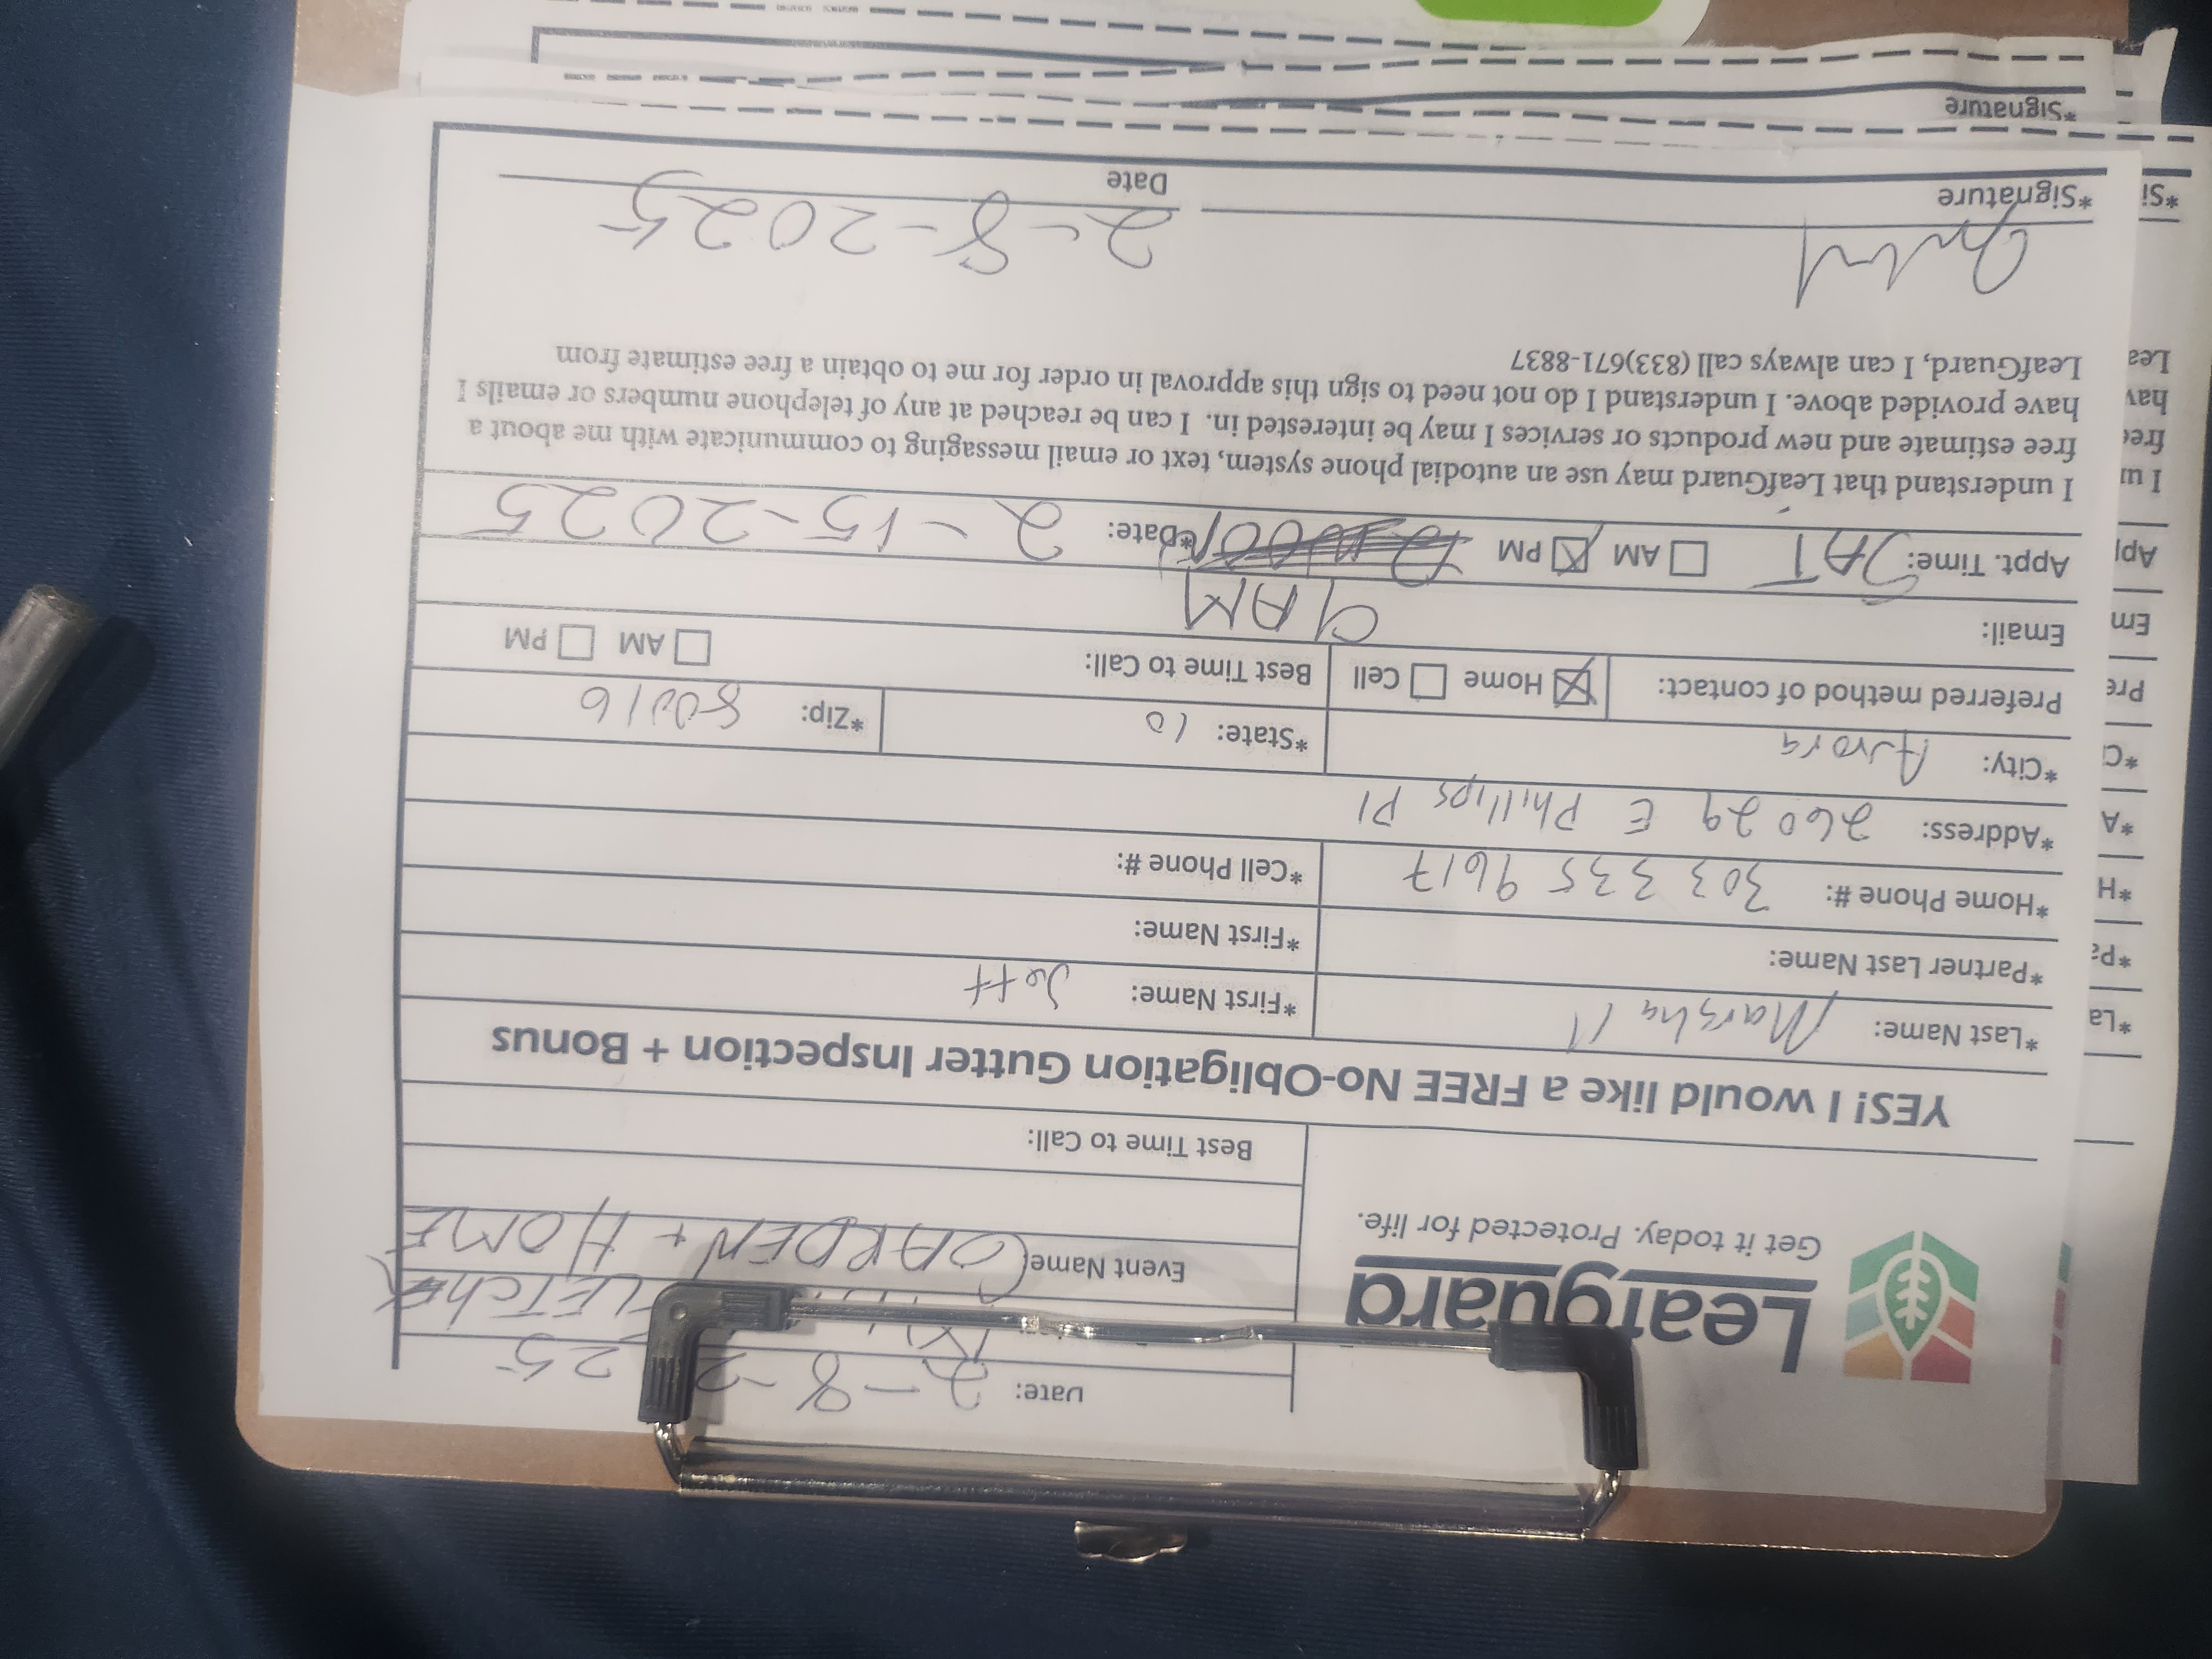 Date: 2-8-25
LETCHER
Event Name GARDEN + HOME
Leafguard
Get it today. Protected for life.
Best Time to Call:
YES! I would like a FREE No-Obligation Gutter Inspection + Bonus
*Last Name: Marshall *First Name: Jeff
*Partner Last Name: *First Name:
*Home Phone #: 303 335 9617 *Cell Phone #:
*Address: 26029 E Phillips Pl
*City: Aurora *State: Co *Zip: 80016
Preferred method of contact: ☒ Home ☐ Cell Best Time to Call: ☐ AM ☐ PM
Email: 9 AM
Appt. Time: SAT ☐ AM ☒ PM *Date: 2-15-2025
I understand that LeafGuard may use an autodial phone system, text or email messaging to communicate with me about a
free estimate and new products or services I may be interested in. I can be reached at any of telephone numbers or emails I
have provided above. I understand I do not need to sign this approval in order for me to obtain a free estimate from
LeafGuard, I can always call (833)671-8837
2-8-2025
*Signature Date
*Signature
*La
*Pa
*H
*A
*Ci
Pre
Em
Ap
I u
free
hav
Lea
*Si